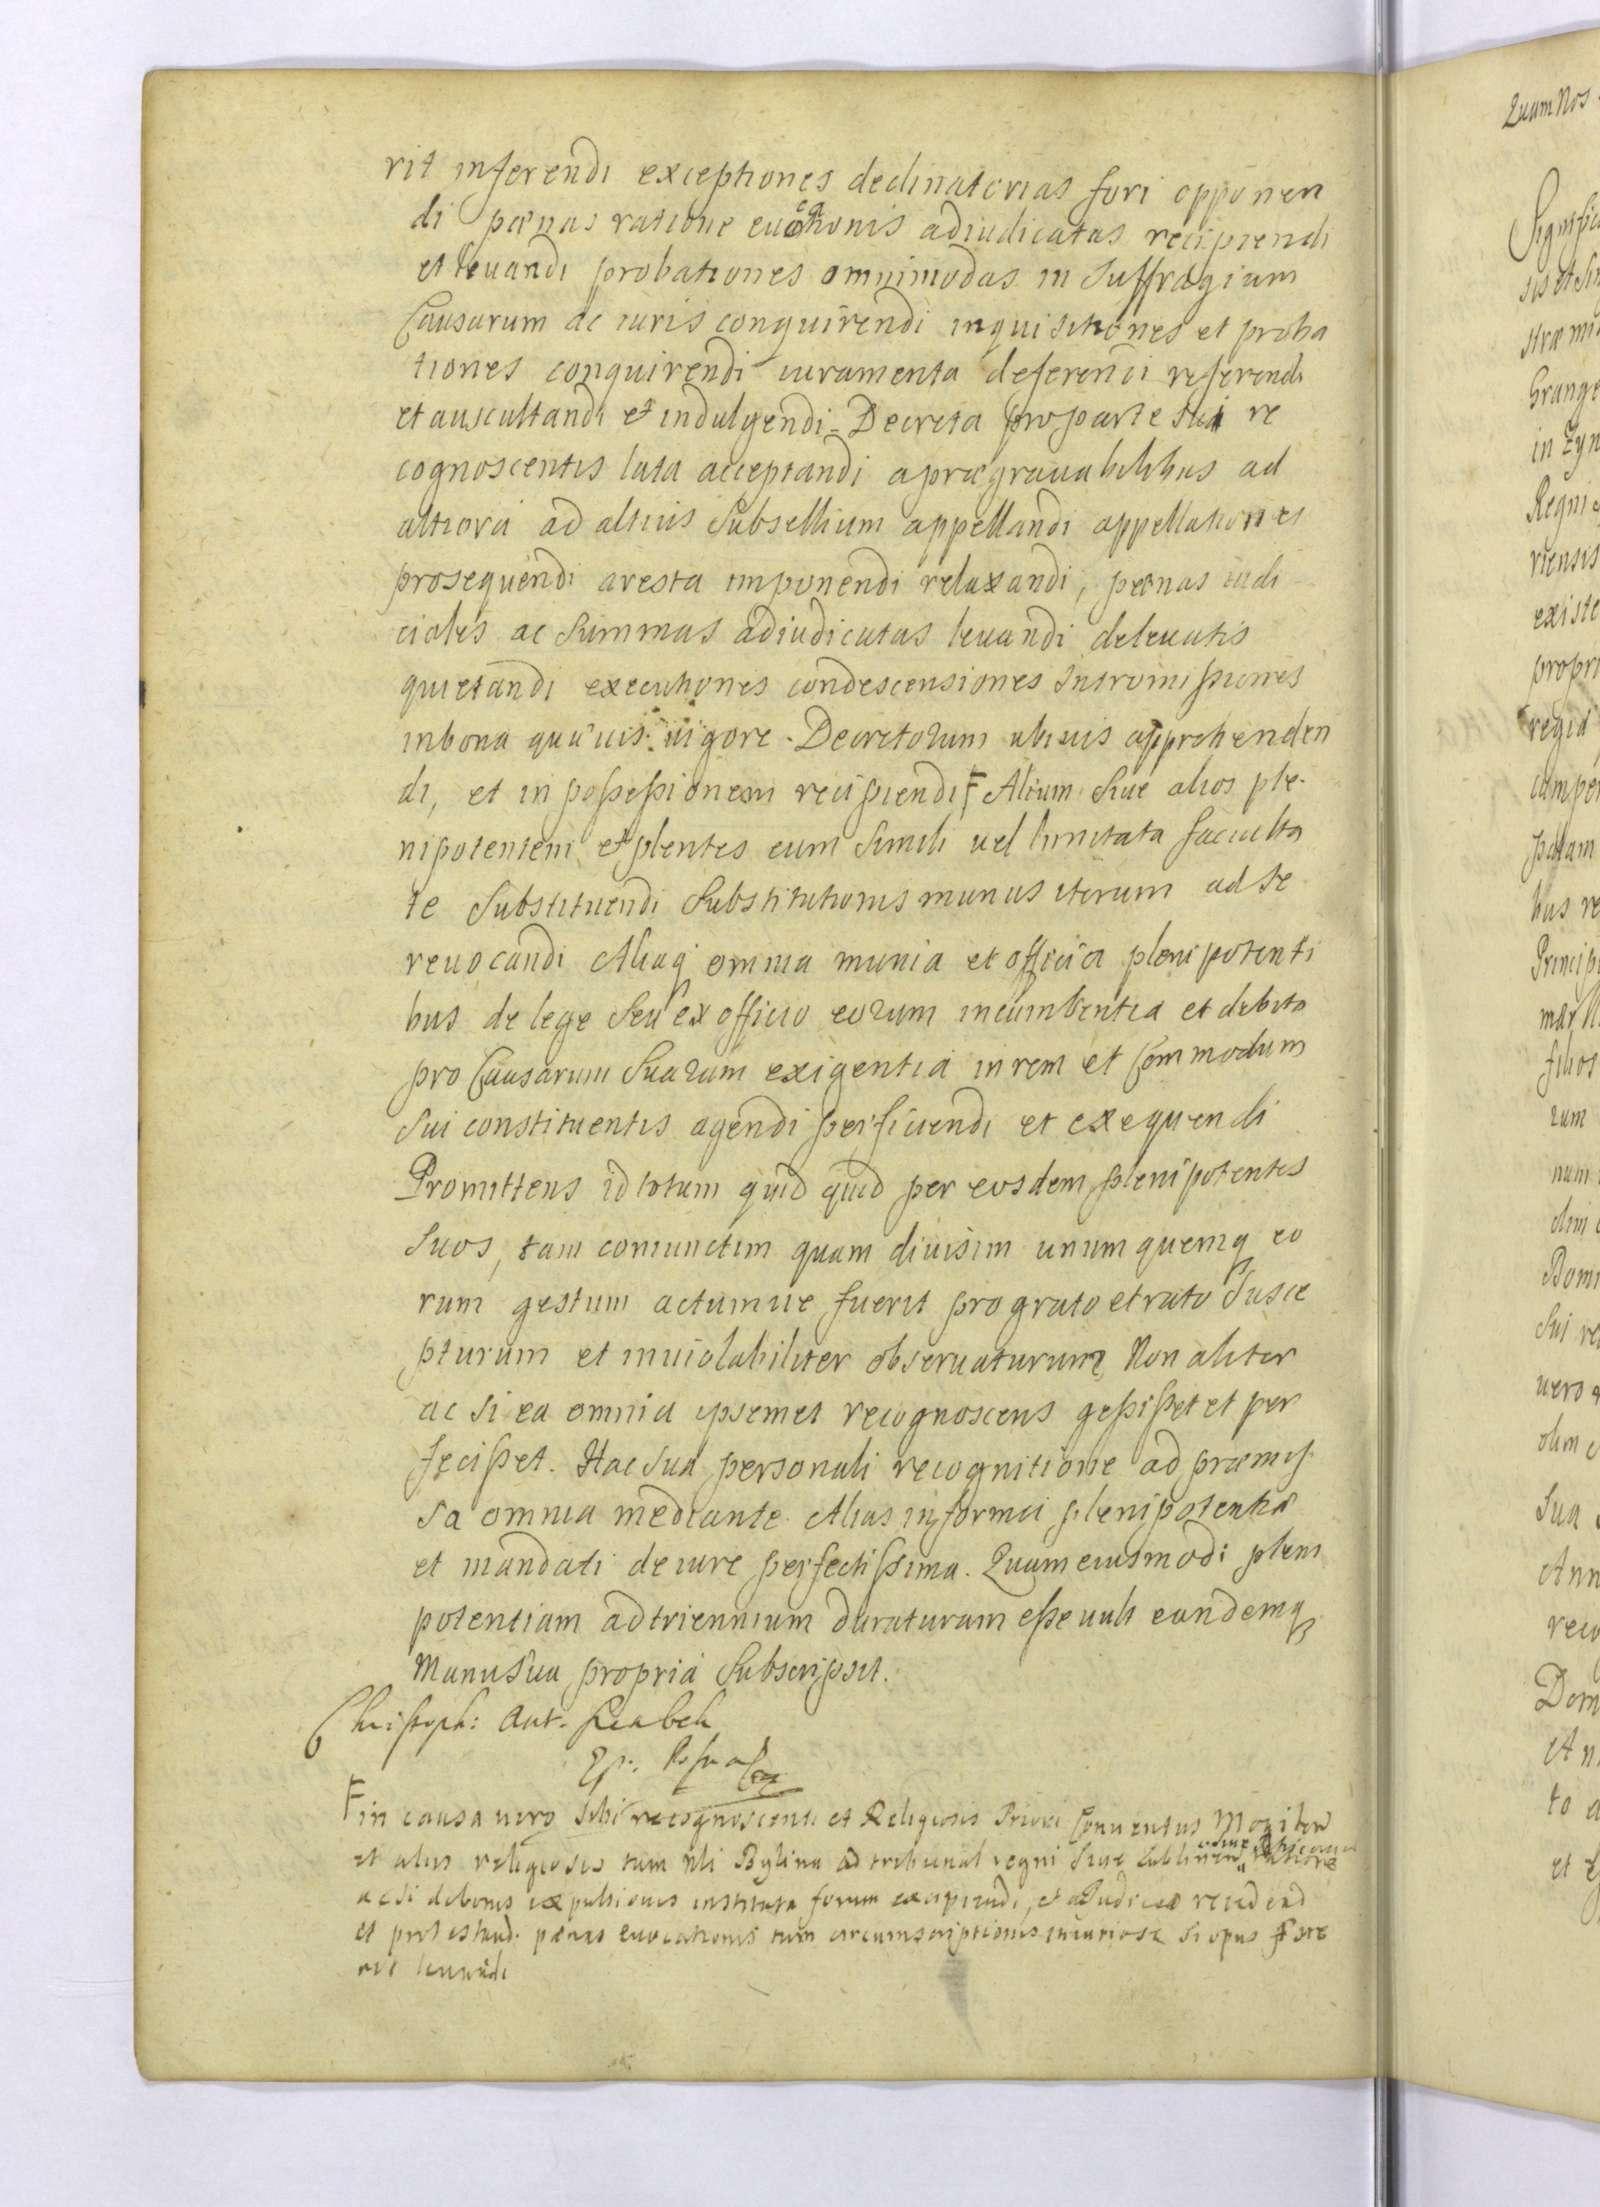 rit inferendi exceptiones declinatorias fori opponen
di pœnas ratione euocationis adiudicatas recipiendi
et leuandi probationes omnimodas in Suffragium
Causarum ac iuris conquirendi inquisitiones et proba
tiones conquirendi iuramenta deferendi referendi
et auscultandi et indulgendi. Decreta pro parte sui re
cognoscentis lata acceptandi a prægrauabilibus ad
altiora ad altius Subsellium appellandi appellationes
prosequendi aresta imponendi relaxandi, pœnas iudi
ciales ac Summas adiudicatas leuandi deleuatis
quietandi executiones condescensiones Intromissiones
in bona quæuis uigore Decretorum ubiuis apprehenden
di, et in possessionem recipiendi F Alium Siue alios ple
nipotentem et plentes cum Simili uel limitata faculta
te Substituendi Substitutionis munus iterum ad Se
reuocandi Aliaq omnia munia et officia plenipotenti
bus de lege Seu ex officio eorum incumbentia et debita
pro Causarum Suarum exigentia in rem et Commodum
Sui constituentis agendi perficiendi et exequendi
Promittens id totum quid quid per eosdem plenipotentes
Suos, tam coniunctim quam diuisim unum quemq eo
rum gestum actumue fuerit pro grato et rato Susce
pturum et inuiolabiliter obseruaturum, Non aliter
ac Si ea omnia ipsemet recognoscens gessisset et per
fecisset. Hac Sua personali recognitione ad præmis
sa omnia mediante. Alias in forma plenipotentiæ
et mandati de iure perfectissima. Quam eiusmodi pleni
potentiam ad triennium duraturam esse uult eandemq
Manu Sua propria Subscripsit.
Christoph: Ant.
F in causa uero Sibi recognoscenti et Religiosis Priori Conuentus Mogilen
et aliis religiosis tum Bylina ad tribunal regni Siue Lublinen siue ratione
ac Si de bonis expulsionis instituta forum excipiendi, et
et protestand. pœnas euocationis tum circumscriptionis iniuriosæ Si opus fue
rit leuandi
Quam Nos
Regni
existe
propri
regia
palam
bus re
Princip
filios
rum
nam
olim
Sui re
uero
olim
Sua
Ann
reco
Dom
An
to a
et